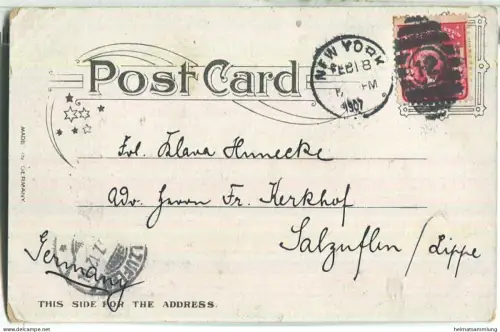 Post Card
NEW YORK
FEB 18
PM
1907
12
MADE IN GERMANY.
Frl. Klara Hunecke
Adr. Herrn Fr. Kerkhof
Salzuflen / Lippe
Germany
THIS SIDE FOR THE ADDRESS.
heimatsammlung.de